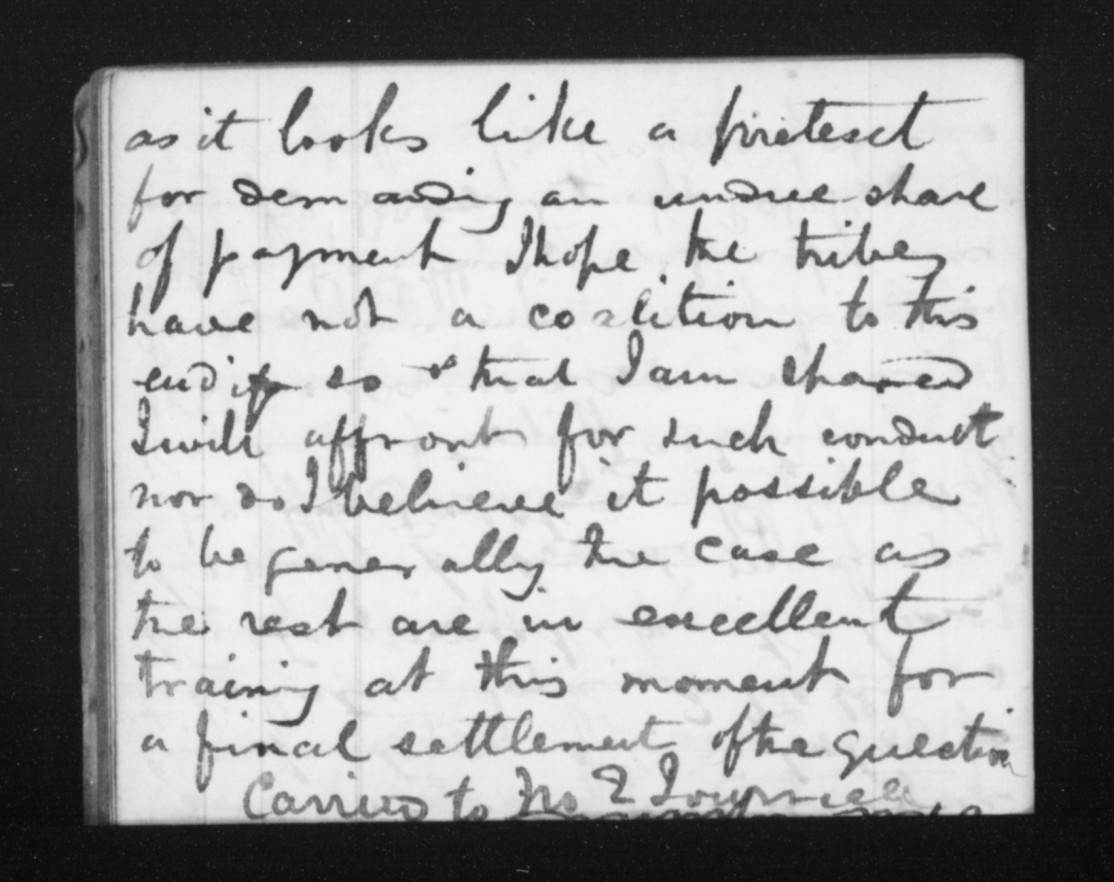 as it looks like a pretext
for demanding an undue share
of payment I hope the tribes
have not a coalition to this
end if so that I am
I will affront for such conduct
nor do I believe it possible
to be generally the case as
the rest are in excellent
training at this moment for
a final settlement of the question
Carried to No 2